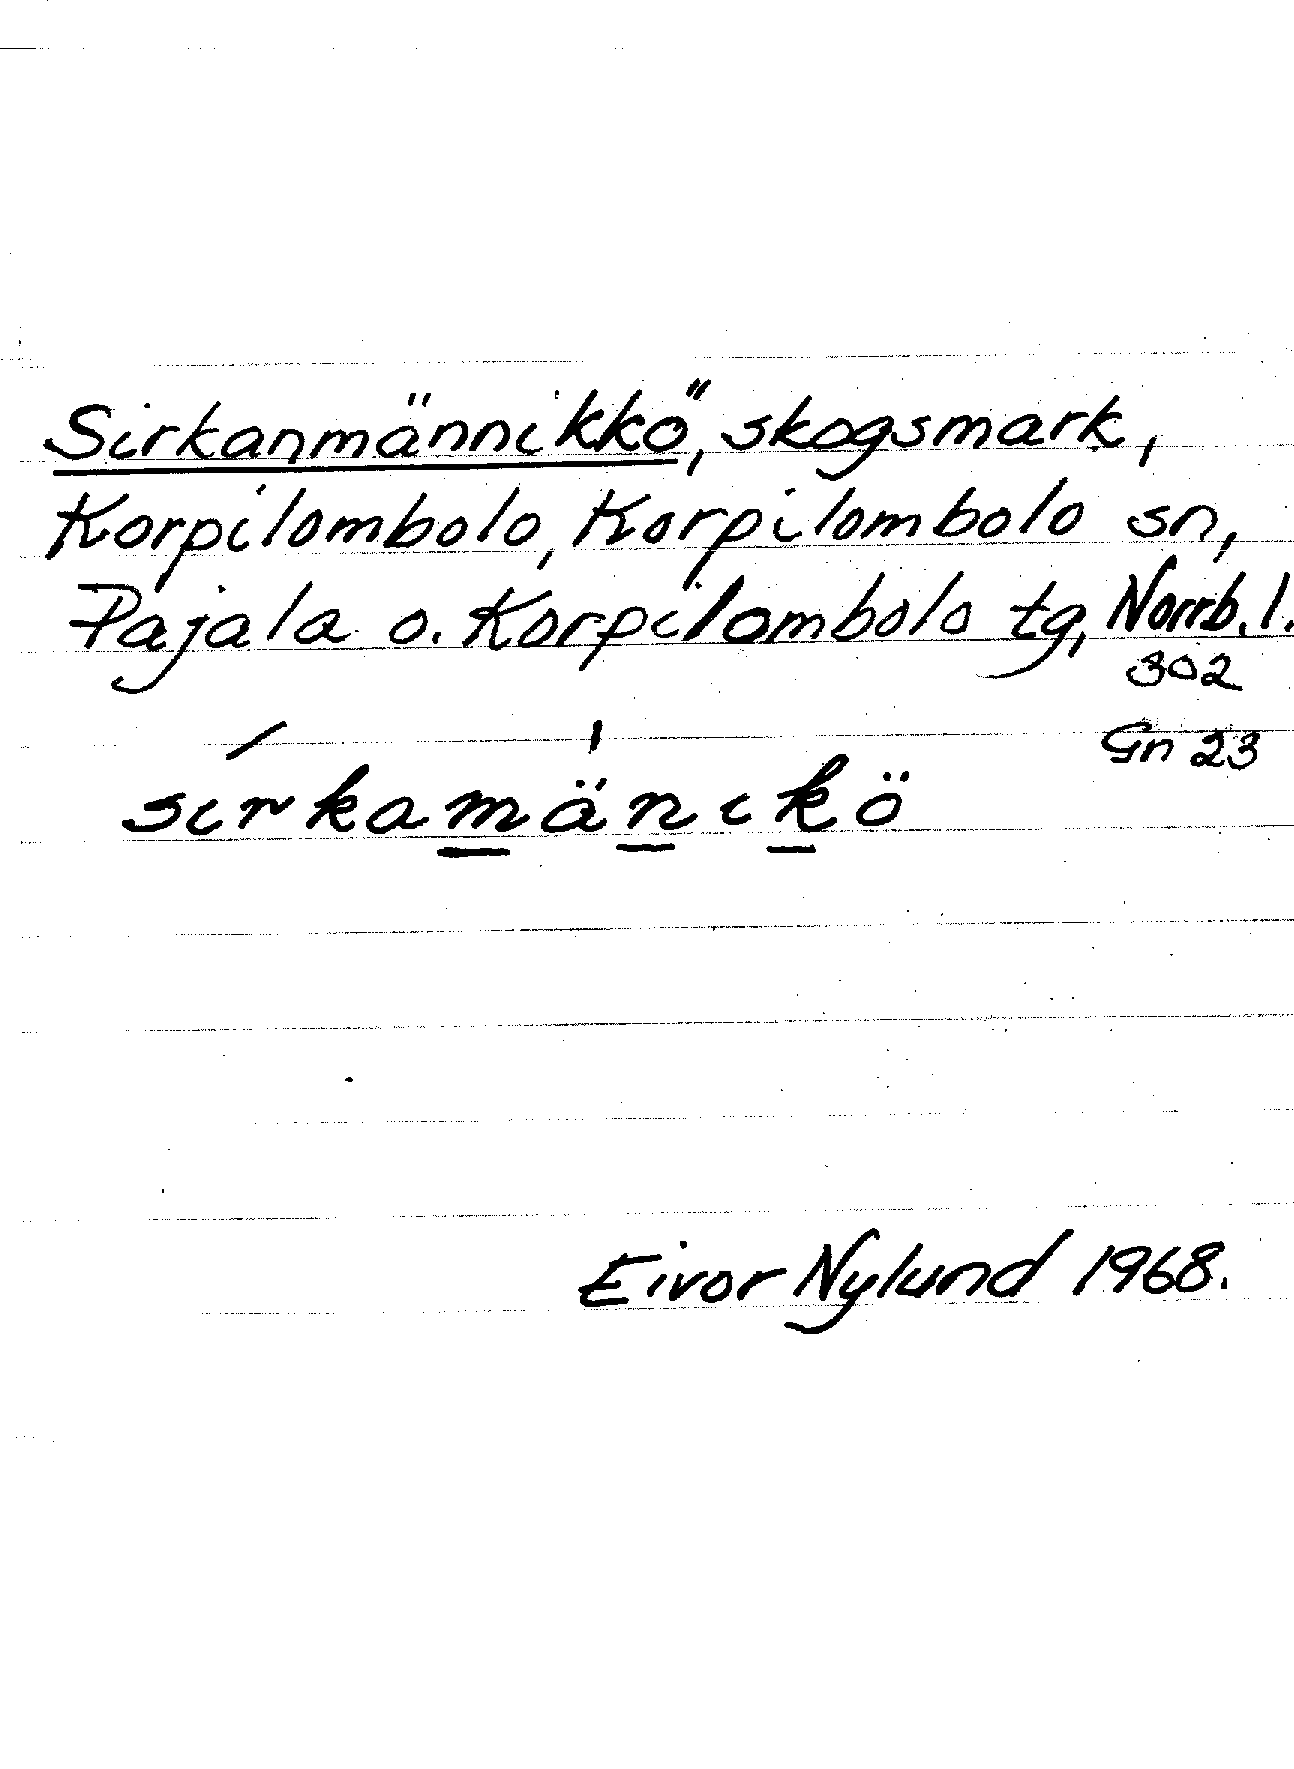 Sirkanmännikkö, skogsmark,
Korpilombolo, Korpilombolo sn,
Pajala o. Korpilombolo tg, Norrb. l.
302
Gn 23
sirkamänikö
Eivor Nylund 1968.